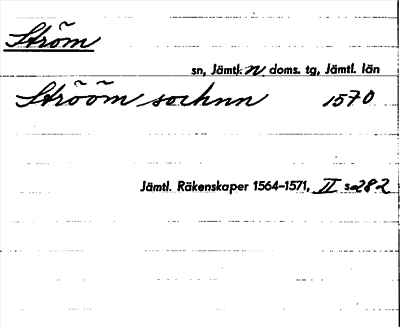 Ström
sn, Jämtl. n doms. tg, Jämtl. län
Strööm sochnn 1570
Jämtl. Räkenskaper 1564-1571, II s 282